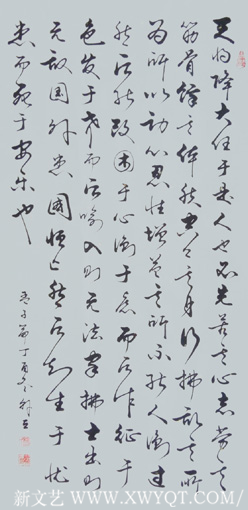 天将降大任于是人也必先苦其心志劳其
筋骨饿其体肤空乏其身行拂乱其所
为所以动心忍性增益其所不能人恒过
然后能改困于心衡于虑而后作征于
色发于声而后喻入则无法家拂士出则
无敌国外患国恒亡然后知生于忧
患而死于安乐也
孟子篇丁酉冬
新文艺 - WWW.XWYQT.COM/